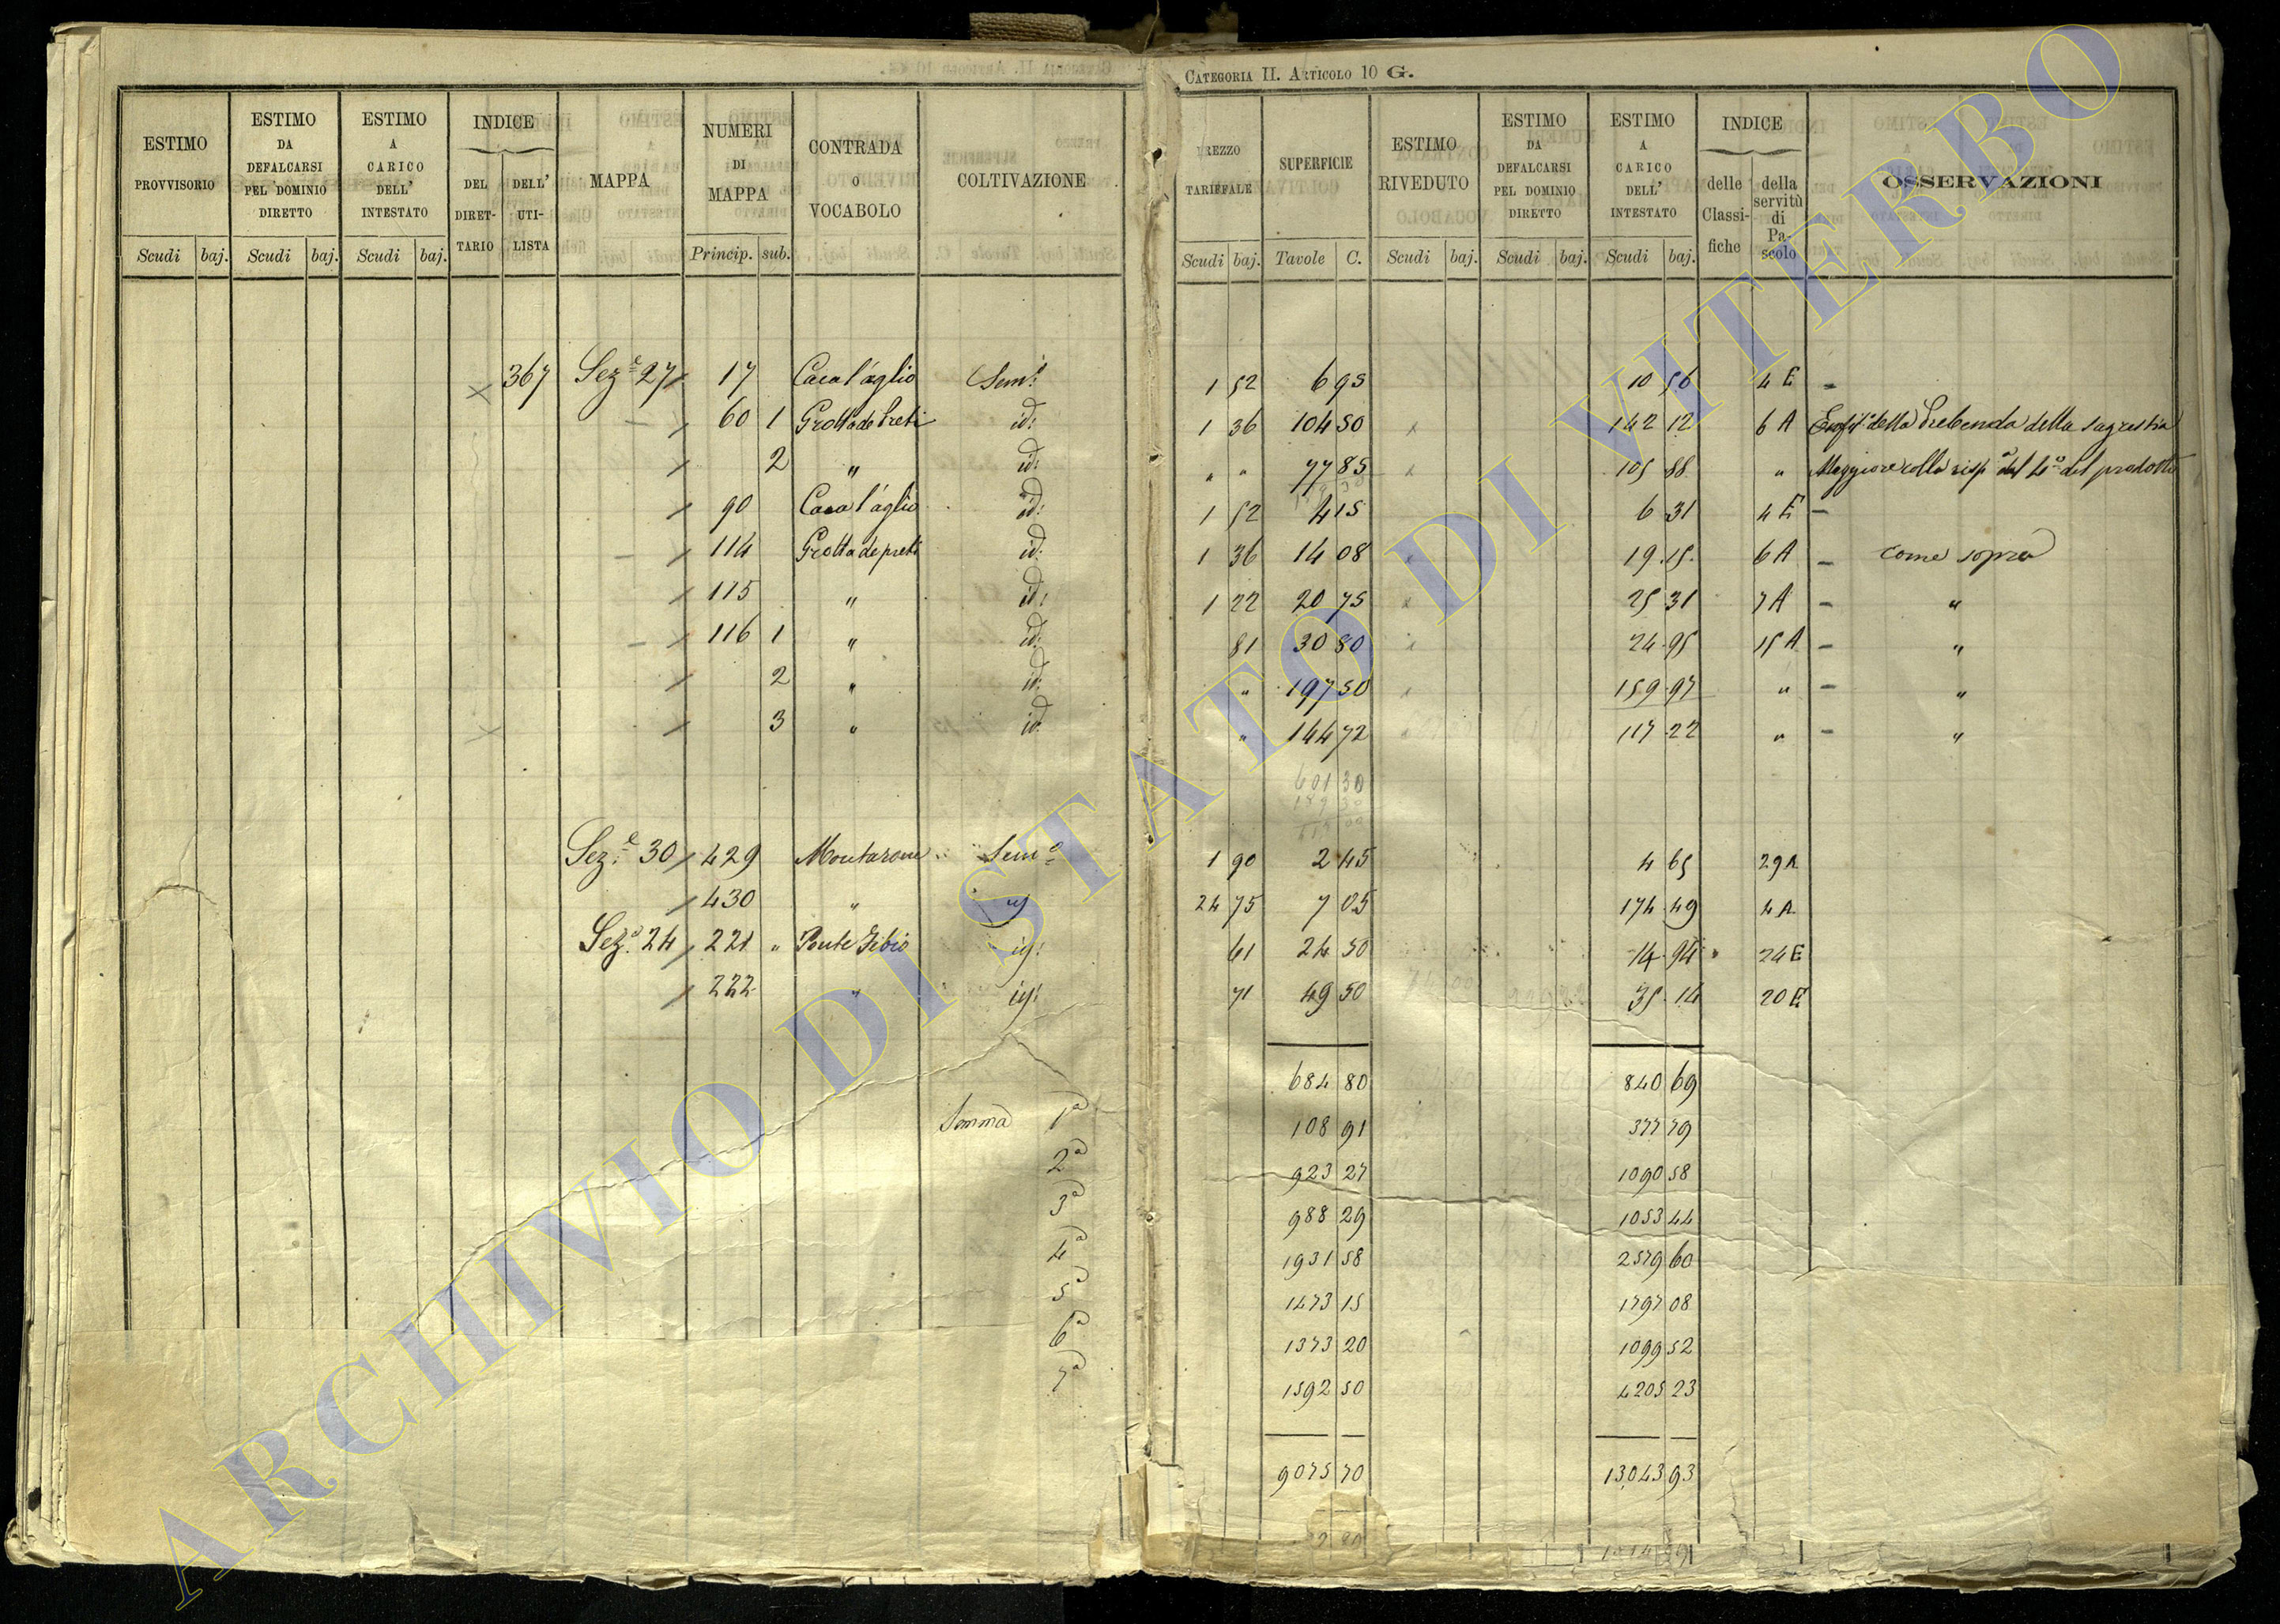 CATEGORIA II. ARTICOLO 10 G.
ESTIMO PROVVISORIO Scudi baj.
ESTIMO DA DEFALCARSI PEL DOMINIO DIRETTO Scudi baj.
ESTIMO A CARICO DELL' INTESTATO Scudi baj.
INDICE DEL DIRET-TARIO DELL' UTI-LISTA
MAPPA
NUMERI DI MAPPA Princip. sub.
CONTRADA O VOCABOLO
COLTIVAZIONE
PREZZO TARIFFALE Scudi baj.
SUPERFICIE Tavole C.
ESTIMO RIVEDUTO Scudi baj.
ESTIMO DA DEFALCARSI PEL DOMINIO DIRETTO Scudi baj.
ESTIMO A CARICO DELL' INTESTATO Scudi baj.
INDICE delle Classi-fiche della servitù di Pa-scolo
OSSERVAZIONI
367 Sez.e 27 17 Casal'aglio Sem.o 1 52 6 95 10 56 4 E –
60 1 Grotta de Preti id: 1 36 104 50 142 12 6 A della Prebenda della sagrestia
2 " id: " " 77 85 105 88 " Maggiore colla del 4.o del prodotto
90 Casal'aglio id: 1 52 4 15 6 31 4 E –
114 Grotta de preti id: 1 36 14 08 19 15 6 A – come sopra
115 " id: 1 22 20 75 25 31 7 A – "
116 1 " id: 81 30 80 24 95 15 A – "
2 " id: " 197 50 159 97 " – "
3 " id: " 144 72 117 22 " – "
601 30
Sez.e 30 429 Montarone Sem.o 1 90 2 45 4 65 29 A
430 " 24 75 7 05 174 49 4 A
Sez.e 24 221 " Ponte 61 24 50 14 94 24 E
222 " 71 49 50 35 14 20 E
684 80 840 69
Somma 1a 108 91 377 79
2a 923 27 1090 58
3a 988 29 1053 44
4a 1931 58 2579 60
5a 1473 15 1797 08
6a 1373 20 1099 52
7a 1592 50 4205 23
9075 70 13043 93
ARCHIVIO DI STATO DI VITERBO